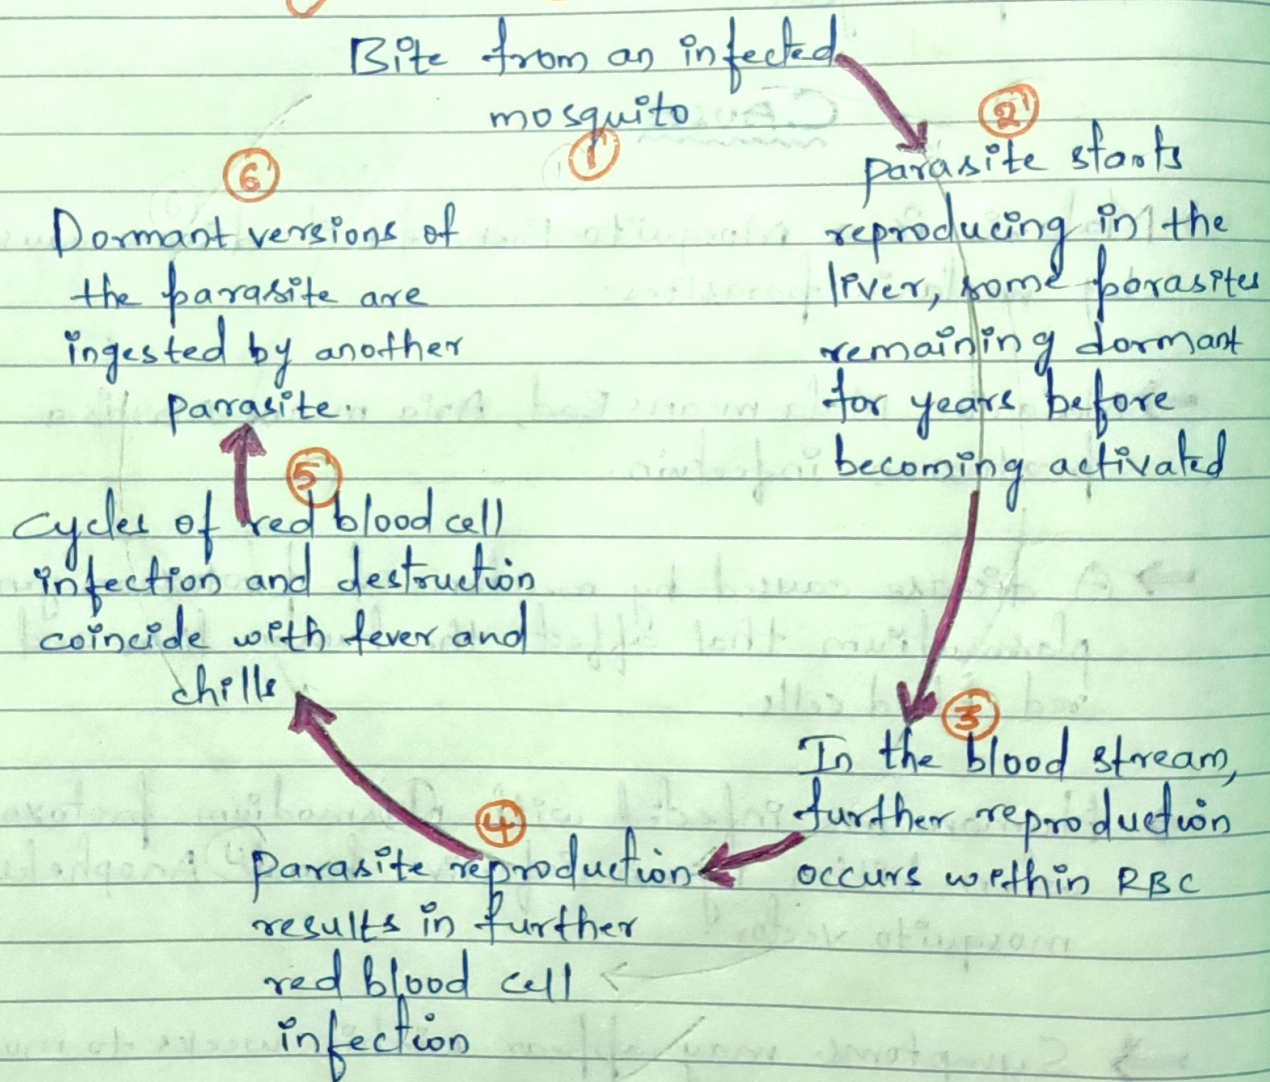 Bite from an infected
mosquito
1
2
parasite starts
reproducing in the
liver, some parasites
remaining dormant
for years before
becoming activated
3
In the blood stream,
further reproduction
occurs within RBC
4
Parasite reproduction
results in further
red blood cell
infection
5
Cycles of red blood cell
infection and destruction
coincide with fever and
chills
6
Dormant versions of
the parasite are
ingested by another
parasite.